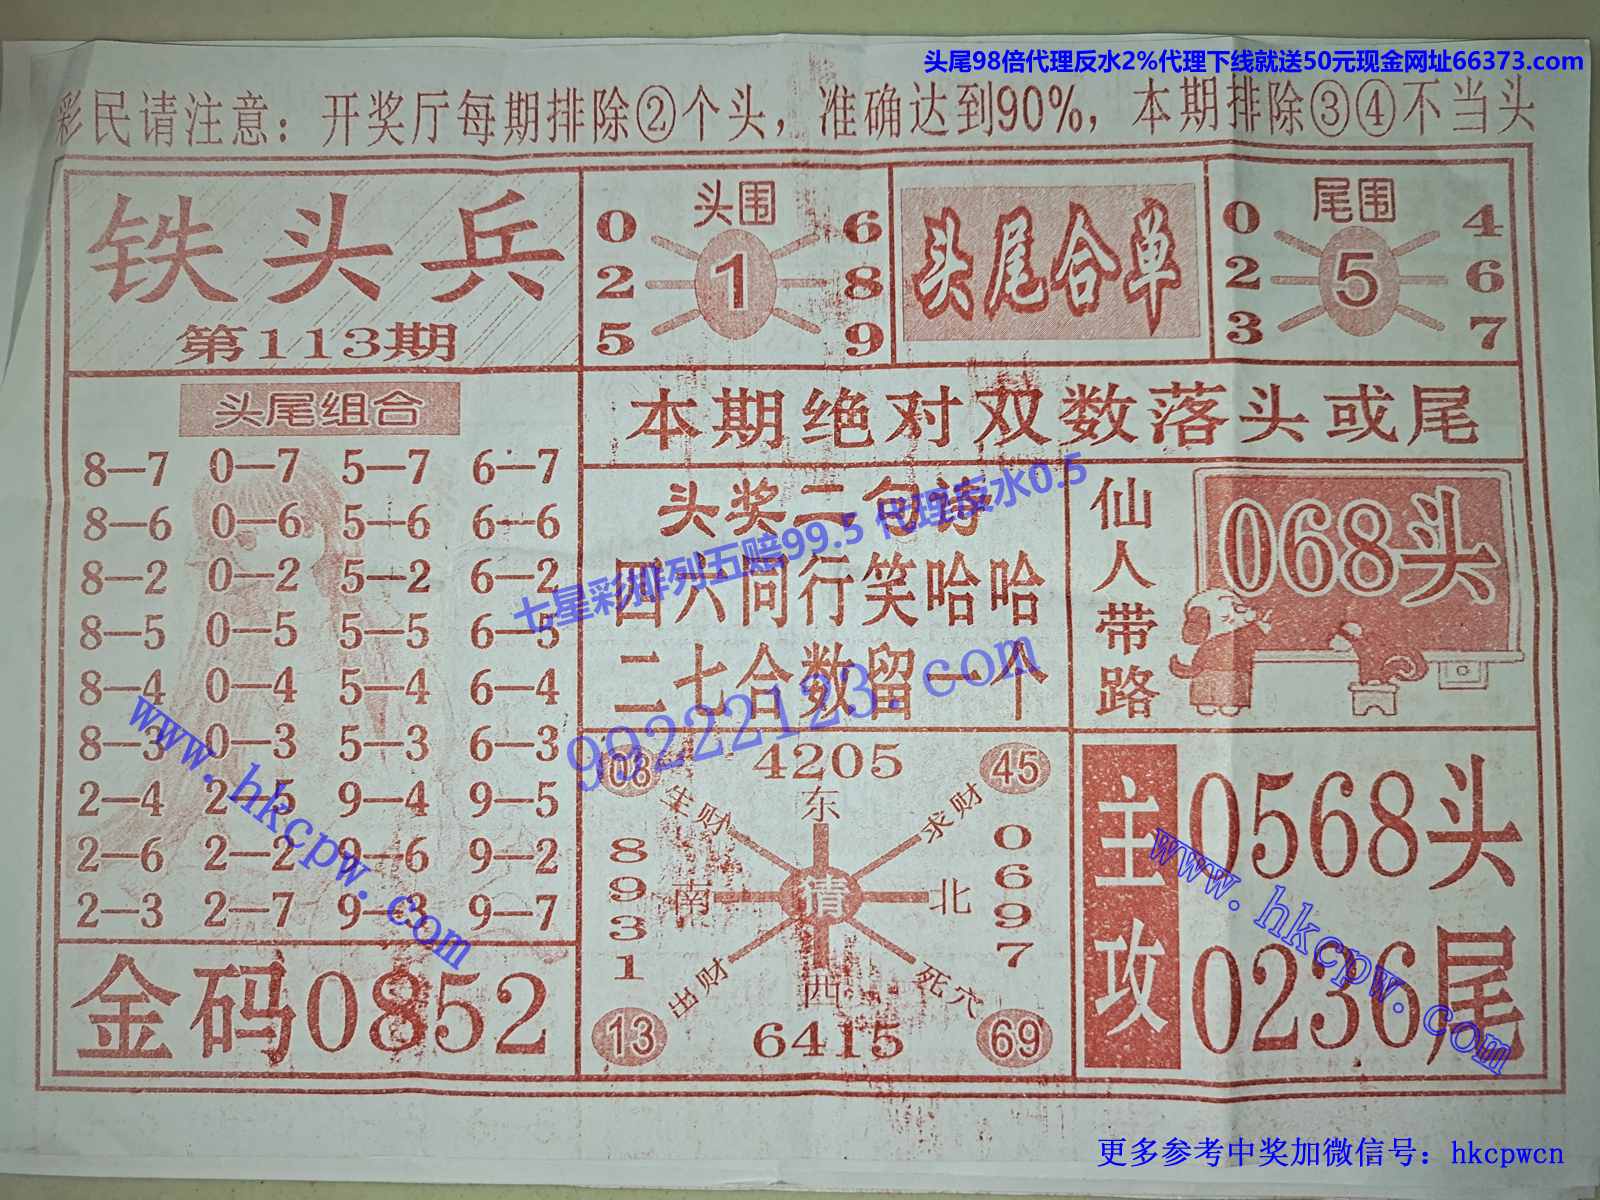 头尾98倍代理反水2%代理下线就送50元现金网址66373.com
彩民请注意：开奖厅每期排除②个头，准确达到90%，本期排除③④不当头
铁头兵
第113期
头围
0 6
2 1 8
5 9
头尾合单
尾围
0 4
2 5 6
3 7
头尾组合
8—7 0—7 5—7 6—7
8—6 0—6 5—6 6—6
8—2 0—2 5—2 6—2
8—5 0—5 5—5 6—5
8—4 0—4 5—4 6—4
8—3 0—3 5—3 6—3
2—4 2—5 9—4 9—5
2—6 2—2 9—6 9—2
2—3 2—7 9—3 9—7
金码0852
本期绝对双数落头或尾
头奖二句诗
四六同行笑哈哈
二七合数留一个
仙人带路
068头
08 4205 45
生财 东 求财
8931 南 猜 北 0697
出财 西 死穴
13 6415 69
主攻
0568头
0236尾
七星彩排列五赔99.5 代理反水0.5
99222123.com
www.hkcpw.com
www.hkcpw.com
更多参考中奖加微信号：hkcpwcn